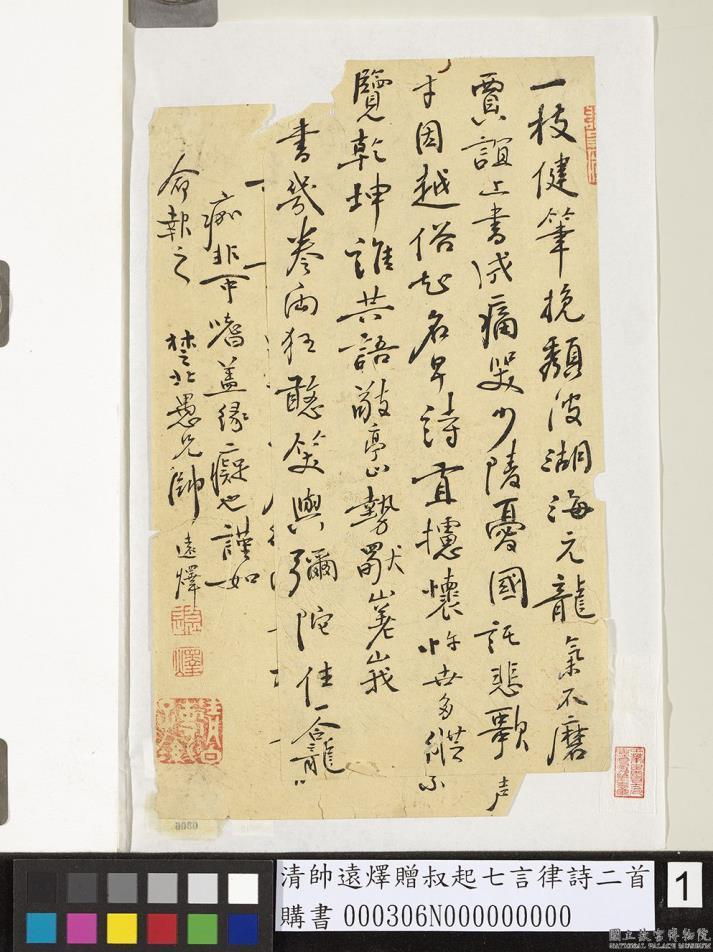 一枝健筆挽頹波湖海元龍氣不磨
賈誼上書成痛哭少陵憂國託悲歌
才因越俗起名早詩直攄懷忤世多縱
覽乾坤誰共語敬亭山勢獨嵯峨
書幾卷
狂憨笑與彌陀住一龕
痴非市嗜蓋緣癡也謹如
命報之
楚北愚兄帥遠燡
遠
燡
清帥遠燡贈叔起七言律詩二首
購書 000306N000000000
1
0306
國立故宮博物院
NATIONAL PALACE MUSEUM